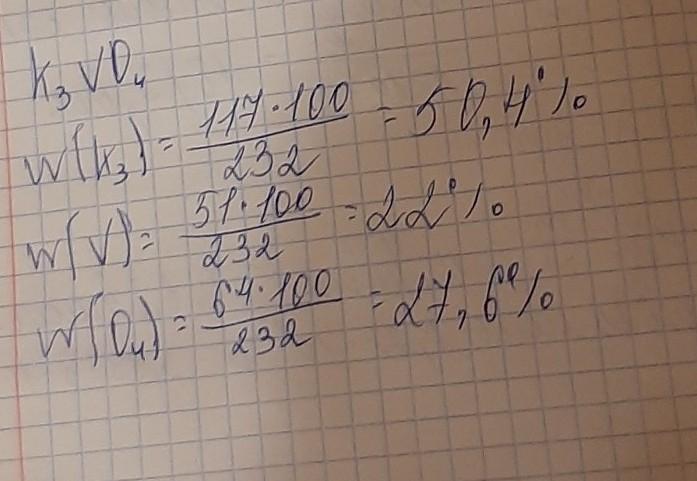 K₃VO₄
W(K₃) = 117·100 / 232 = 50,4%
W(V) = 51·100 / 232 = 22%
W(O₄) = 64·100 / 232 = 27,6%